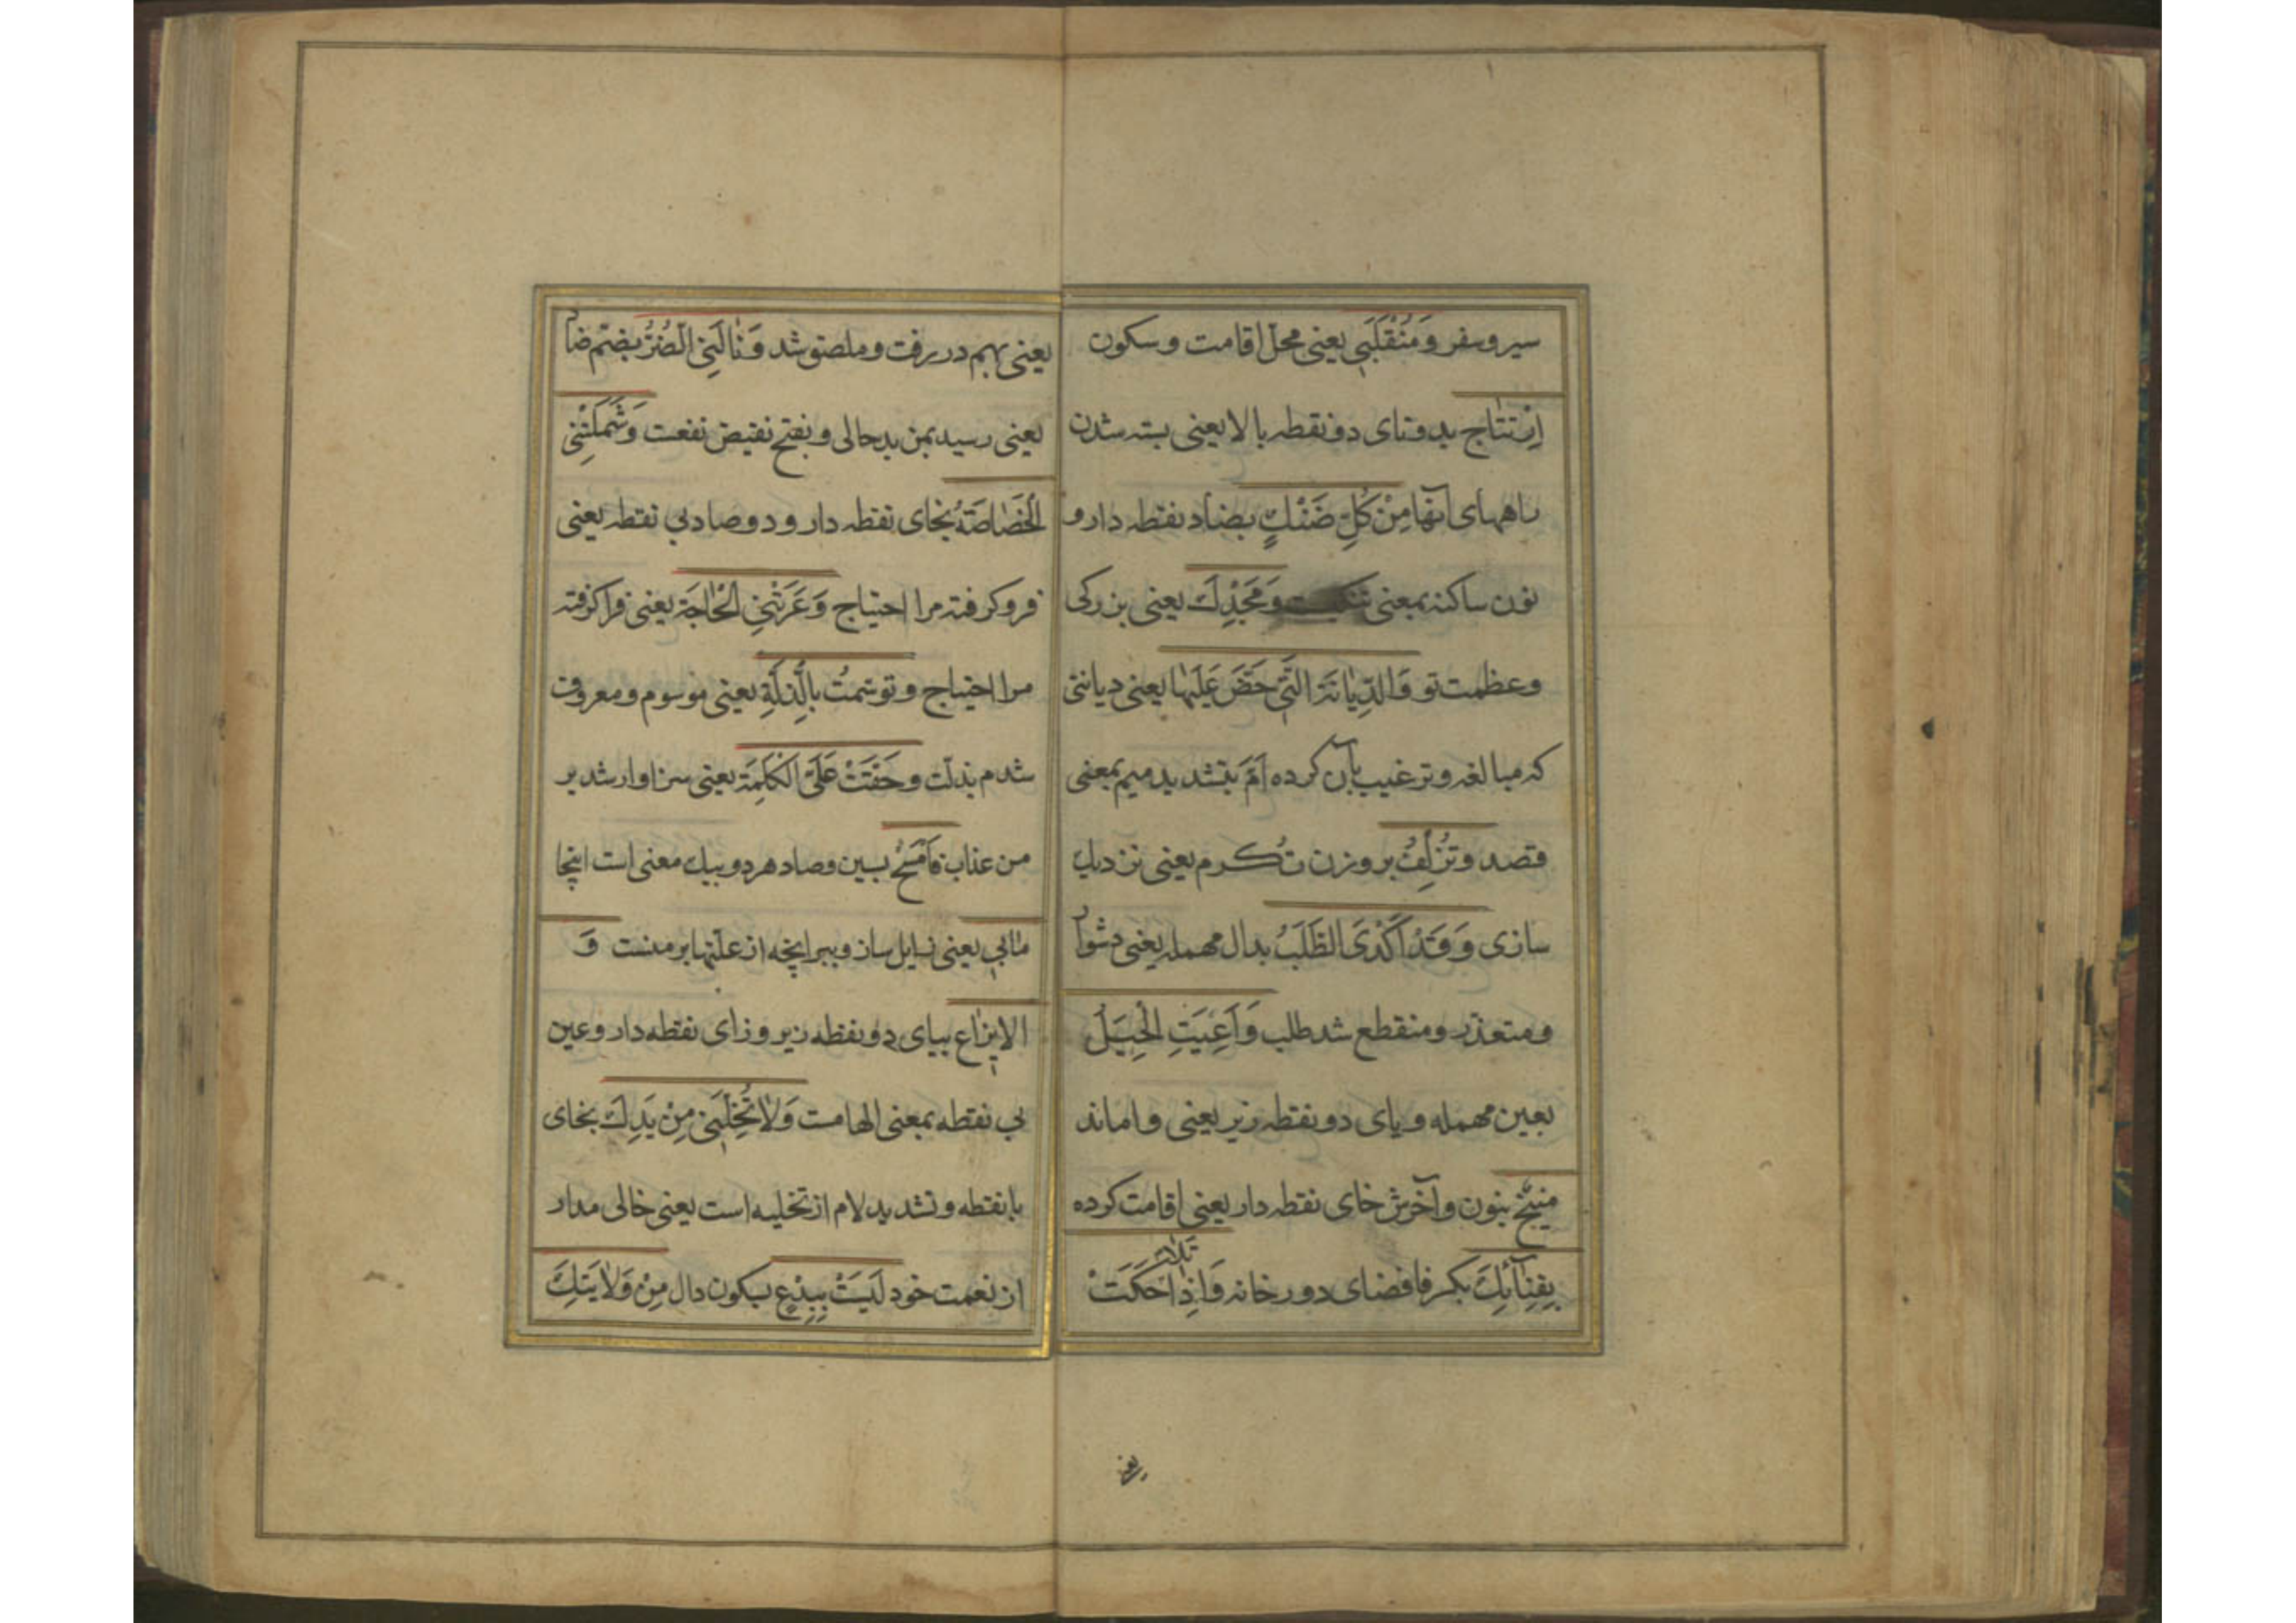 سیر و سفر وَمُنْقَلَبی یعنی محل اقامت و سکون
اِرْتتاج بدو تای دو نقطه بالا یعنی بسته شدن
راههای آنها مِنْ كُلِّ ضَنْكٍ بضاد نقطه دار و
نون ساکنه بمعنی وَمَجْدِكَ یعنی بزرکی
وعظمت تو وَالدِّیانَة الَّتی حَضَّ عَلَیْها یعنی دیانتی
که مبالغه و ترغیب بآن کرده اَمَّ بتشدید میم بمعنی
قصد وتُزْلِفُ بر وزن تُكرم یعنی نزدیك
سازی وَقَدْ اَكْدَی الطَّلَبُ بدال مهمله یعنی دشوار
ومتعذر ومنقطع شد طلب وَاَعْیَتِ الْحِیَلُ
بعین مهمله و یای دو نقطه زیر یعنی واماند
منیخ بنون وآخرش خای نقطه دار یعنی اقامت کرده
بِفِنآئِكَ بکسر فا فضای دور خانه وَاِذا حَكَّتْ
یعنی
یعنی بهم در رفت و ملصق شد وَنالَنِی الضُّرُّ بضم ضاد
یعنی رسید بمن بدحالی و بفتح نقیض نفعت وَشَمَلَتْنِی
الْخَصاصَةُ بخای نقطه دار و دو صاد بی نقطه یعنی
فرو کرفته مرا احتیاج وَعَرَتْنِی الْحاجَة یعنی فرا کرفته
مرا احتیاج و توسّمتُ بِالذِّلَّةِ یعنی موسوم و معروف
شدم بذلّت و حَقَّتْ عَلَیَّ الْكَلِمَة یعنی سزاوار شد بر
من عذاب فَامْسَحْ بسین و صاد هر دو بیك معنی است اینجا
مابی یعنی زایل ساز و ببر انچه از علّتها بر منست وَ
الایزاع بیای دو نقطه زیر و زای نقطه دار و عین
بی نقطه بمعنی الهامست وَلا تُخِلَّنِی مِنْ یَدِكَ بخای
با نقطه و تشدید لام از تخلیه است یعنی خالی مدار
از نعمت خود لَیْسَتْ بِبِدْعٍ بسکون دال مِنْ وَلایَتِكَ